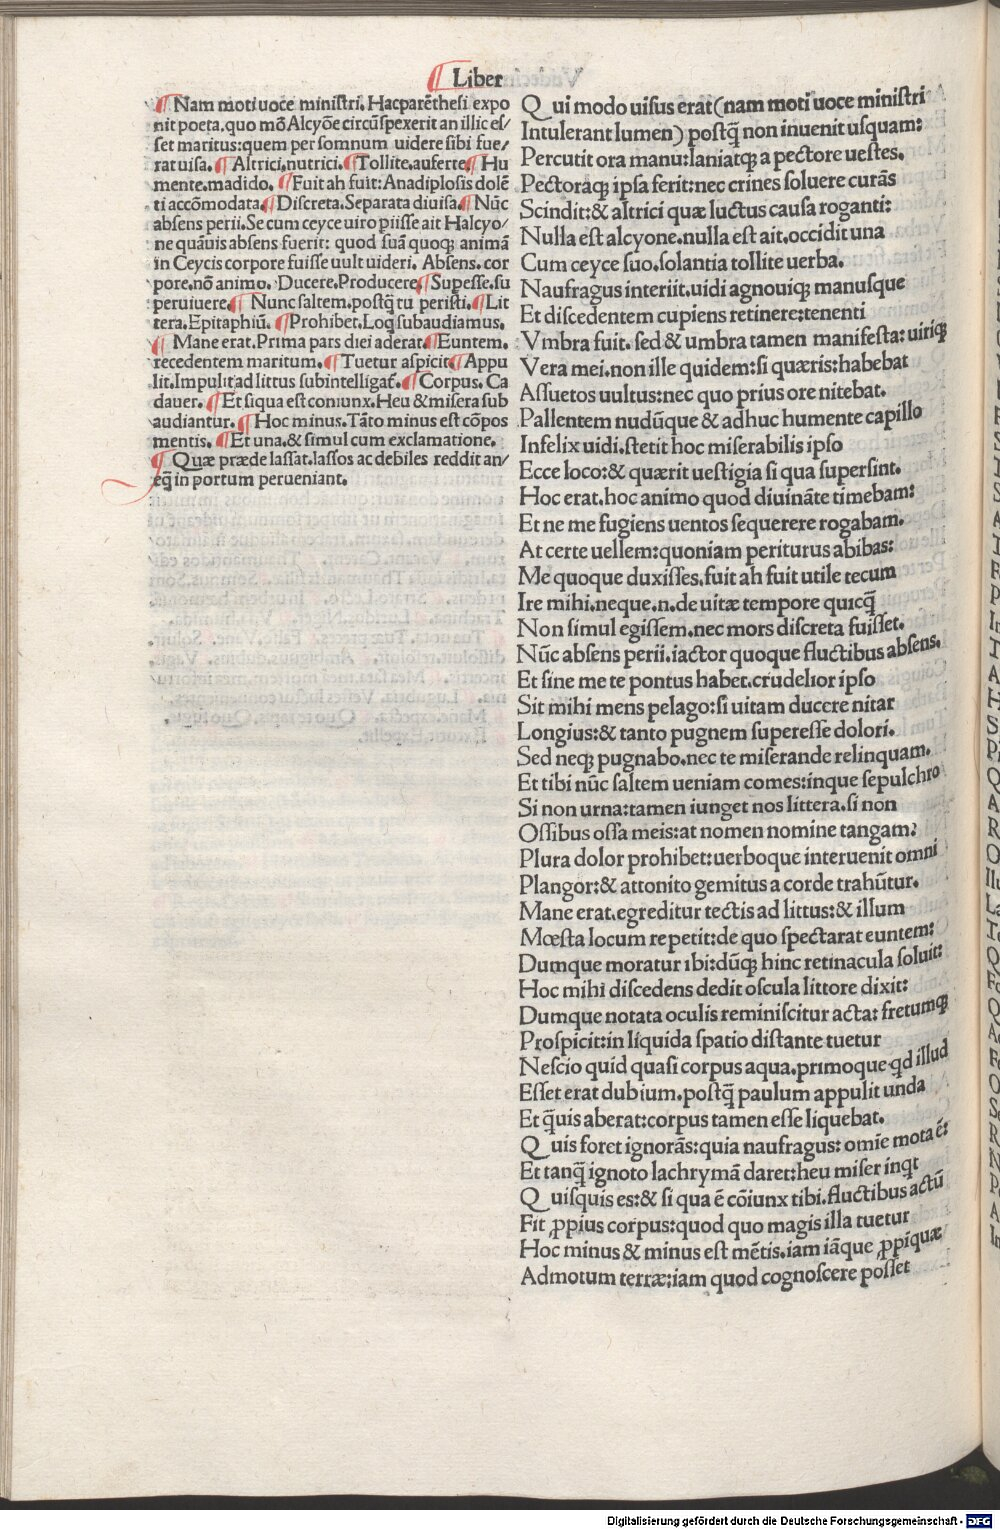 ¶ Liber
¶ Nam moti uoce miniſtri. Hac parẽtheſi expo
nit poeta. quo mõ Alcyõe circũſpexerit an illic eſ/
ſet maritus: quem per ſomnum uidere ſibi fue/
rat uiſa. ¶ Altrici, nutrici. ¶ Tollite. auferte ¶ Hu
mente. madido. ¶ Fuit ah fuit: Anadiploſis dolẽ
ti accõmodata. ¶ Diſcreta. Separata diuiſa. ¶ Nũc
abſens perii. Se cum ceyce uiro piiſſe ait Halcyo/
ne quãuis abſens fuerit: quod ſuã quoqꝫ animã
in Ceycis corpore fuiſſe uult uideri. Abſens. cor
pore. nõ animo. Ducere. Producere. ¶ Supeſſe. ſu
peruiuere. ¶ Nunc ſaltem. poſtq̃ tu periſti. ¶ Lit
tera. Epitaphiũ. ¶ Prohibet. Loq̃ ſubaudiamus.
¶ Mane erat. Prima pars diei aderat. ¶ Euntem.
recedentem maritum. ¶ Tuetur aſpicit. ¶ Appu
lit. Impulit ad littus ſubintelligat̃. ¶ Corpus. Ca
dauer. ¶ Et ſiqua eſt coniunx. Heu & miſera ſub
audiantur. ¶ Hoc minus. Tãto minus eſt cõpos
mentis. ¶ Et una. & ſimul cum exclamatione.
¶ Quæ præde laſſat. laſſos ac debiles reddit an/
eq̃ in portum perueniant.
Qui modo uiſus erat (nam moti uoce miniſtri
Intulerant lumen) poſtq̃ non inuenit uſquam:
Percutit ora manu: laniatqꝫ a pectore ueſtes.
Pectoraqꝫ ipſa ferit: nec crines ſoluere curãs
Scindit: & altrici quæ luctus cauſa roganti:
Nulla eſt alcyone. nulla eſt ait. occidit una
Cum ceyce ſuo. ſolantia tollite uerba.
Naufragus interiit. uidi agnouiqꝫ manuſque
Et diſcedentem cupiens retinere: tenenti
Vmbra fuit. ſed & umbra tamen manifeſta: uiriqꝫ
Vera mei. non ille quidem: ſi quæris: habebat
Aſſuetos uultus: nec quo prius ore nitebat.
Pallentem nudũque & adhuc humente capillo
Infelix uidi. ſtetit hoc miſerabilis ipſo
Ecce loco: & quærit ueſtigia ſi qua ſuperſint.
Hoc erat. hoc animo quod diuinãte timebam:
Et ne me fugiens uentos ſequerere rogabam.
At certe uellem: quoniam periturus abibas:
Me quoque duxiſſes. fuit ah fuit utile tecum
Ire mihi. neque .n. de uitæ tempore quicq̃
Non ſimul egiſſem. nec mors diſcreta fuiſſet.
Nũc abſens perii. iactor quoque fluctibus abſens.
Et ſine me te pontus habet. crudelior ipſo
Sit mihi mens pelago: ſi uitam ducere nitar
Longius: & tanto pugnem ſupereſſe dolori.
Sed neqꝫ pugnabo. nec te miſerande relinquam.
Et tibi nũc ſaltem ueniam comes: inque ſepulchro
Si non urna: tamen iunget nos littera. ſi non
Oſſibus oſſa meis: at nomen nomine tangam?
Plura dolor prohibet: uerboque interuenit omni
Plangor: & attonito gemitus a corde trahũtur.
Mane erat. egreditur tectis ad littus: & illum
Mœſta locum repetit: de quo ſpectarat euntem:
Dumque moratur ibi: dũqꝫ hinc retinacula ſoluit:
Hoc mihi diſcedens dedit oſcula littore dixit:
Dumque notata oculis reminiſcitur acta: fretumqꝫ
Proſpicit: in liquida ſpatio diſtante tuetur
Neſcio quid quaſi corpus aqua. primoque qd illud
Eſſet erat dubium. poſtq̃ paulum appulit unda
Et q̃uis aberat: corpus tamen eſſe liquebat.
Quis foret ignorãs: quia naufragus: omĩe mota ẽ:
Et tanq̃ ignoto lachrymã daret: heu miſer inqt
Quiſquis es: & ſi qua ẽ cõiunx tibi. fluctibus actũ
Fit ꝓpius corpus: quod quo magis illa tuetur
Hoc minus & minus eſt mẽtis. iam iãque ꝓpiquæ
Admotum terræ: iam quod cognoſcere poſſet
Digitalisierung gefördert durch die Deutsche Forschungsgemeinschaft - DFG